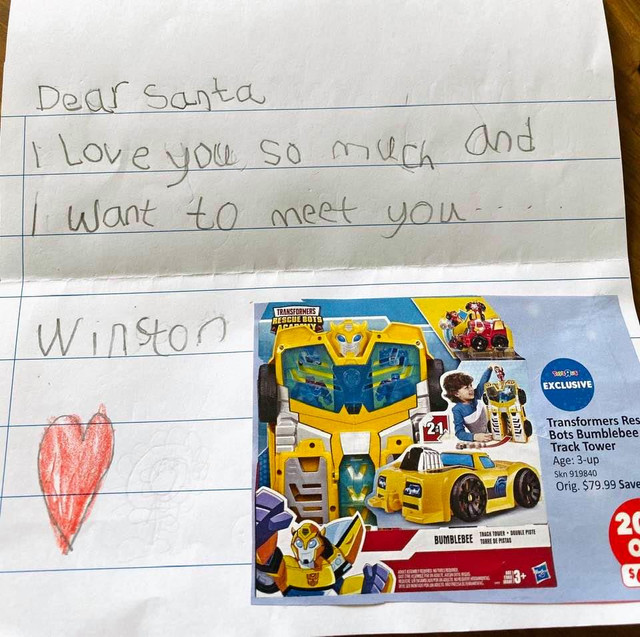 Dear Santa
I Love you so much and
I want to meet you.....
Winston
TRANSFORMERS
RESCUE BOTS
ACADEMY
2-1
BUMBLEBEE
TRACK TOWER • DOUBLE PISTE
TORRE DE PISTAS
3+
Hasbro
ToysRus
EXCLUSIVE
Transformers Res
Bots Bumblebee
Track Tower
Age: 3-up
Skn 919840
Orig. $79.99 Save
20
O
$